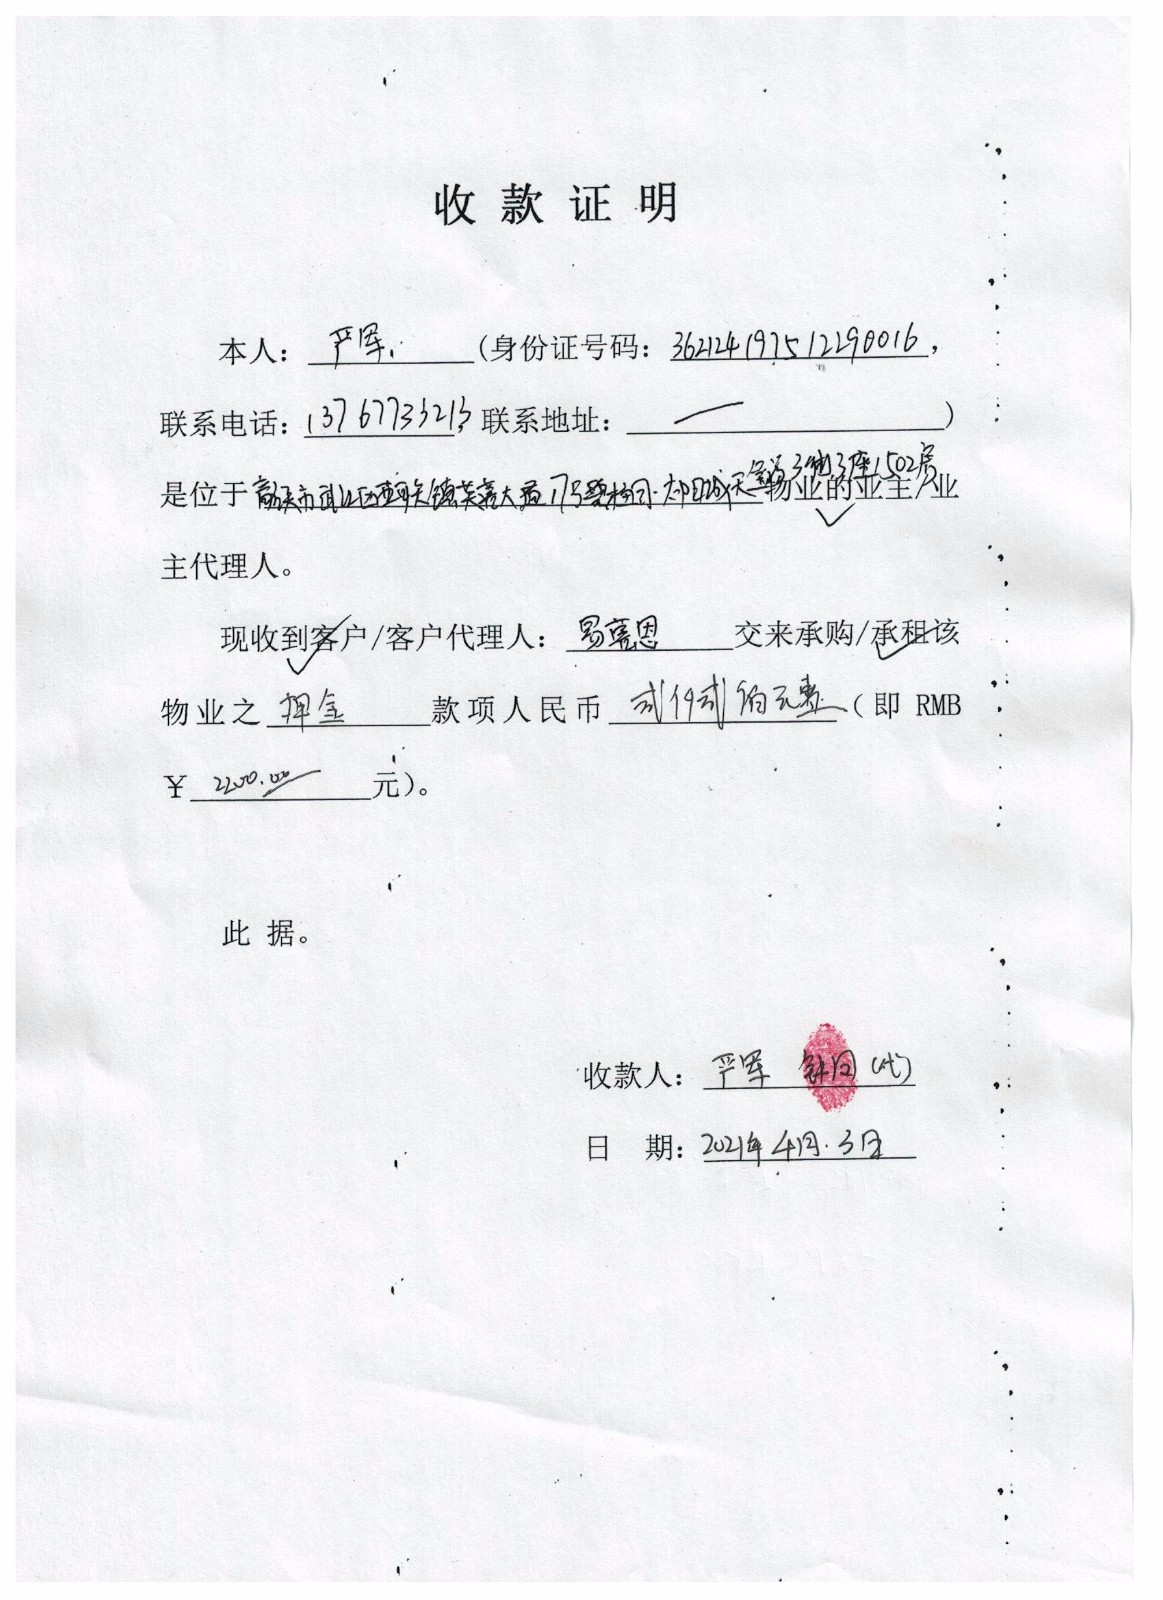 收款证明
本人：严军（身份证号码：362124197512290016，
联系电话：13767733213 联系地址：—）
是位于市武江区西联镇芙蓉大道17号碧桂园·太阳城天3街3座1502房物业的业主/业
主代理人。
现收到客户/客户代理人：易喜恩 交来承购/承租该
物业之 押金 款项人民币 贰仟贰佰元整（即 RMB
￥2200.00元）。
此 据。
收款人：严军 （代）
日 期：2021年4月3日